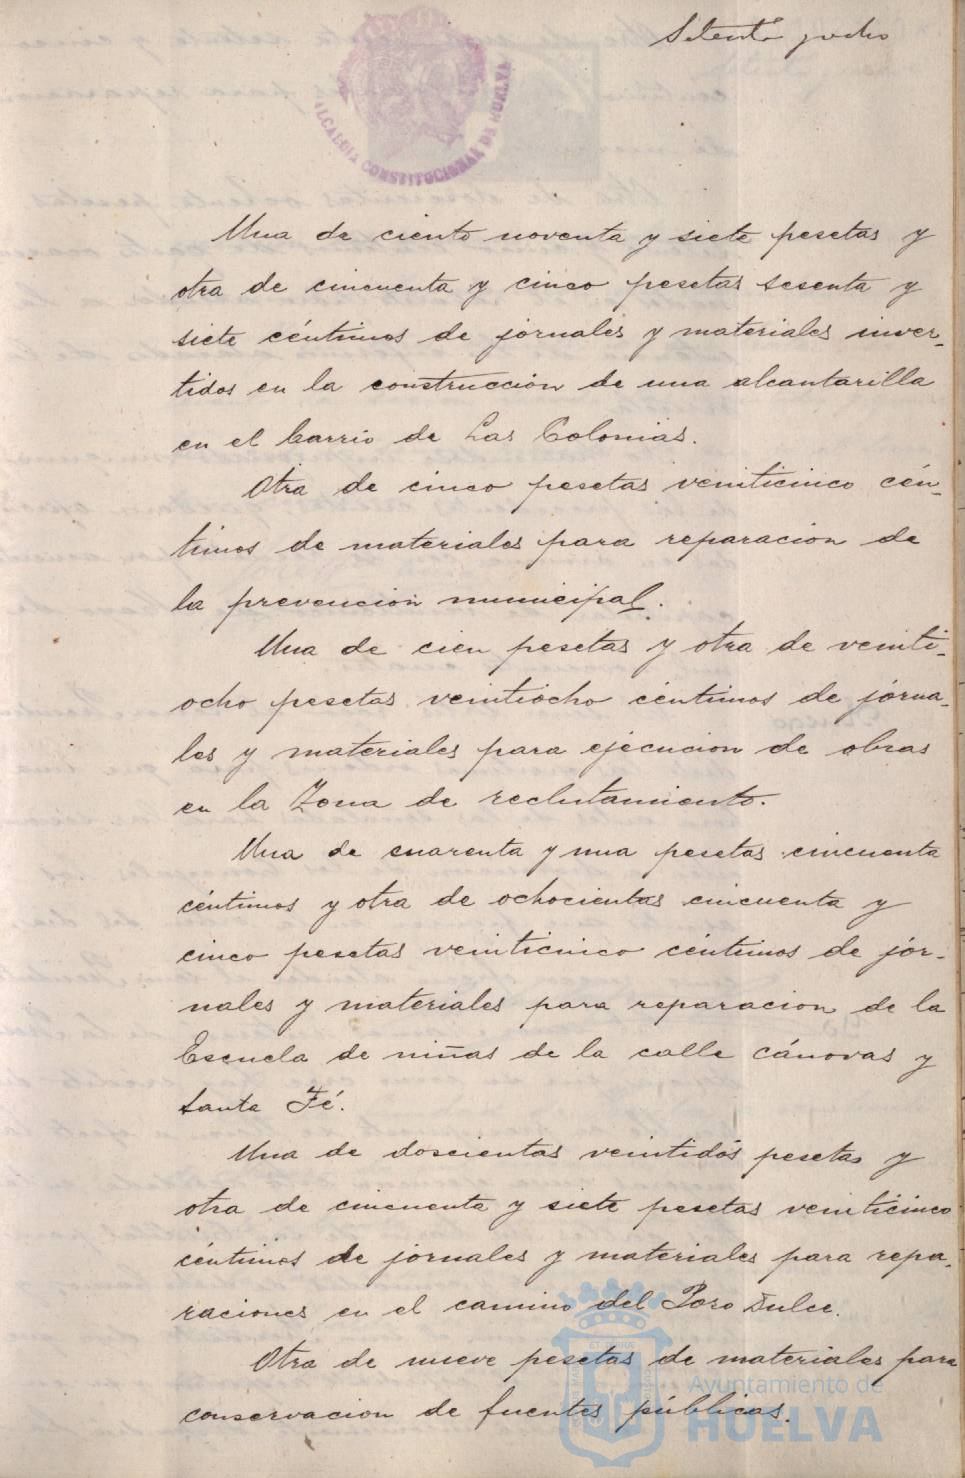 Setenta y ocho
ALCALDIA CONSTITUCIONAL DE HUELVA
Una de ciento noventa y siete pesetas y
otra de cincuenta y cinco pesetas sesenta y
siete céntimos de jornales y materiales inver-
tidos en la construcción de una alcantarilla
en el barrio de Las Colonias.
Otra de cinco pesetas veinticinco cén-
timos de materiales para reparacion de
la prevencion municipal.
Una de cien pesetas y otra de veinti-
ocho pesetas veintiocho céntimos de jorna-
les y materiales para ejecucion de obras
en la Zona de reclutamiento.
Una de cuarenta y una pesetas cincuenta
céntimos y otra de ochocientas cincuenta y
cinco pesetas veinticinco céntimos de jor-
nales y materiales para reparacion de la
Escuela de niñas de la calle cánovas y
Santa Fé.
Una de doscientas veintidós pesetas y
otra de cincuenta y siete pesetas veinticinco
céntimos de jornales y materiales para repa-
raciones en el camino del Pozo Dulce.
Otra de nueve pesetas de materiales para
conservacion de fuentes públicas.
Ayuntamiento de
HUELVA